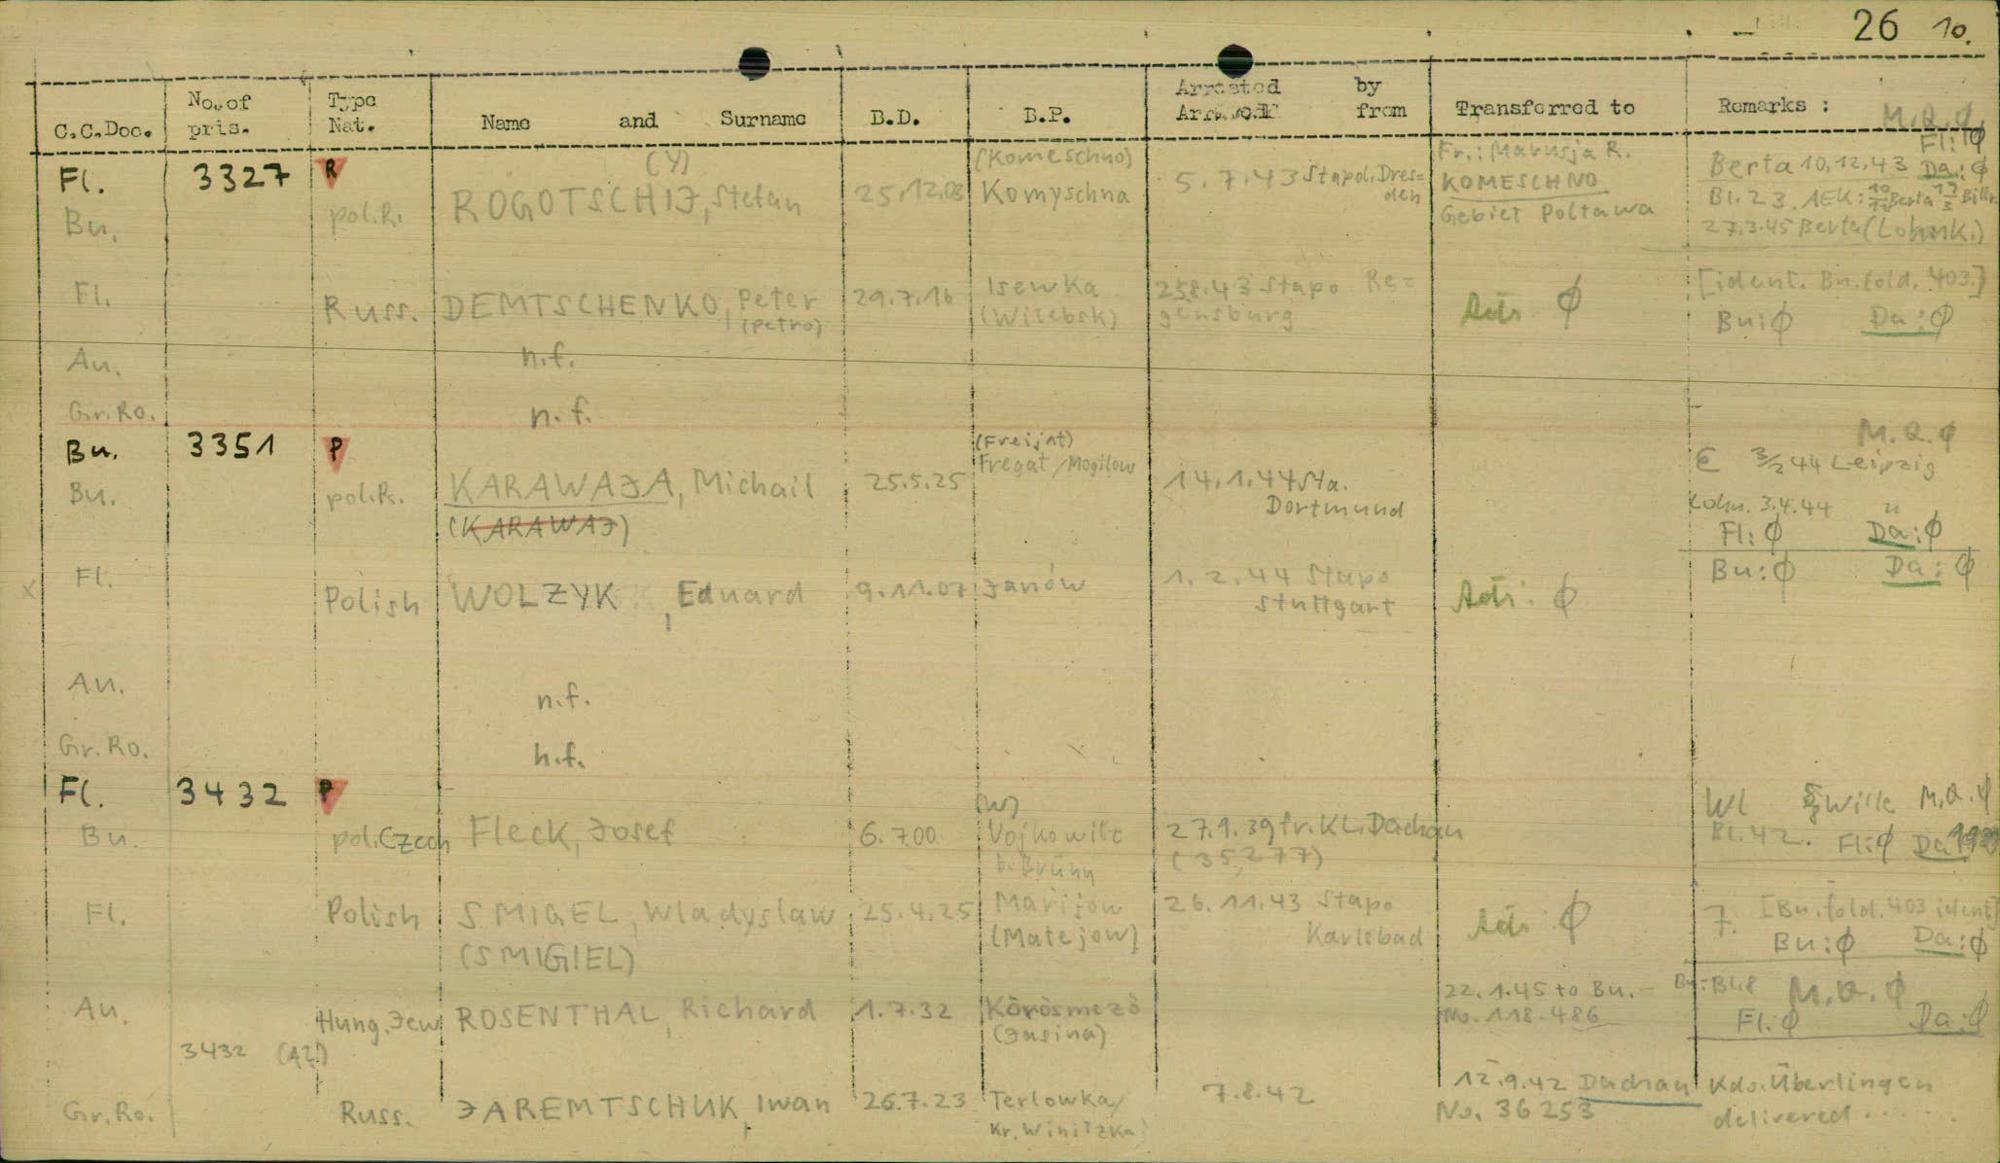 26 10.
C.C.Doc. No. of pris. Type Nat. Name and Surname B.D. B.P. Arrested by from Transferred to Remarks : M.Q. Ø
Fl. 3327 R (Y) (Komeschno) Fr.: Marusja R. Fl: Ø
Bu. pol.R. ROGOTSCHIJ, Stefan 25.12.03 Komyschna 5.7.43 Stapol. Dres= KOMESCHNO Berta 10.12.43 Da: Ø
den Gebiet Poltawa Bl. 23. AEK: Berta
27.3.45 Berta (Lohnk.)
Fl. Russ. DEMTSCHENKO, Peter 29.7.16 Isewka 25.8.43 Stapo Re= Ø [ident. Bu. fold. 403.]
(Petro) (Witebsk) gensburg Bu: Ø Da: Ø
Au. n.f.
Gr.Ro. n.f.
Bu. 3351 P (Freijat) M.Q. Ø
Fregat/Mogilow 3/2 44 Leipzig
Bu. pol.R. KARAWAJA, Michail 25.5.25 14.1.44 Sta. Lohn. 3.4.44 "
(KARAWAJ) Dortmund Fl: Ø Da: Ø
Fl. Polish WOLZYK, Eduard 9.11.07 Janów 1.2.44 Stapo Ø Bu: Ø Da: Ø
Stuttgart
Au. n.f.
Gr.Ro. n.f.
Fl. 3432 P (W) Wl Wille M.Q. Ø
Bu. pol. Czech Fleck, Josef 6.7.00 Vojkowitz 27.9.39 fr. KL. Dachau Bl. 42. Fl: Ø Da
b. Brünn (35,277)
Fl. Polish SMIGEL, Wladyslaw 25.4.25 Marijow 26.11.43 Stapo Ø 7. [Bu. fold. 403 ident]
(SMIGIEL) (Matejow) Karlsbad Bu: Ø Da: Ø
Au. Hung. Jew ROSENTHAL, Richard 1.7.32 Körösmezö 22.1.45 to Bu. - Bu: Bl. 8 M.Q. Ø
(Jasina) No. 118.486 Fl: Ø Da: Ø
3432 (AZ!)
Gr.Ro. Russ. JAREMTSCHUK, Iwan 26.7.23 Terlowka/ 7.8.42 12.9.42 Dachau Kdo. Überlingen
Kr. Winitzka No. 36253 delivered . . . . .